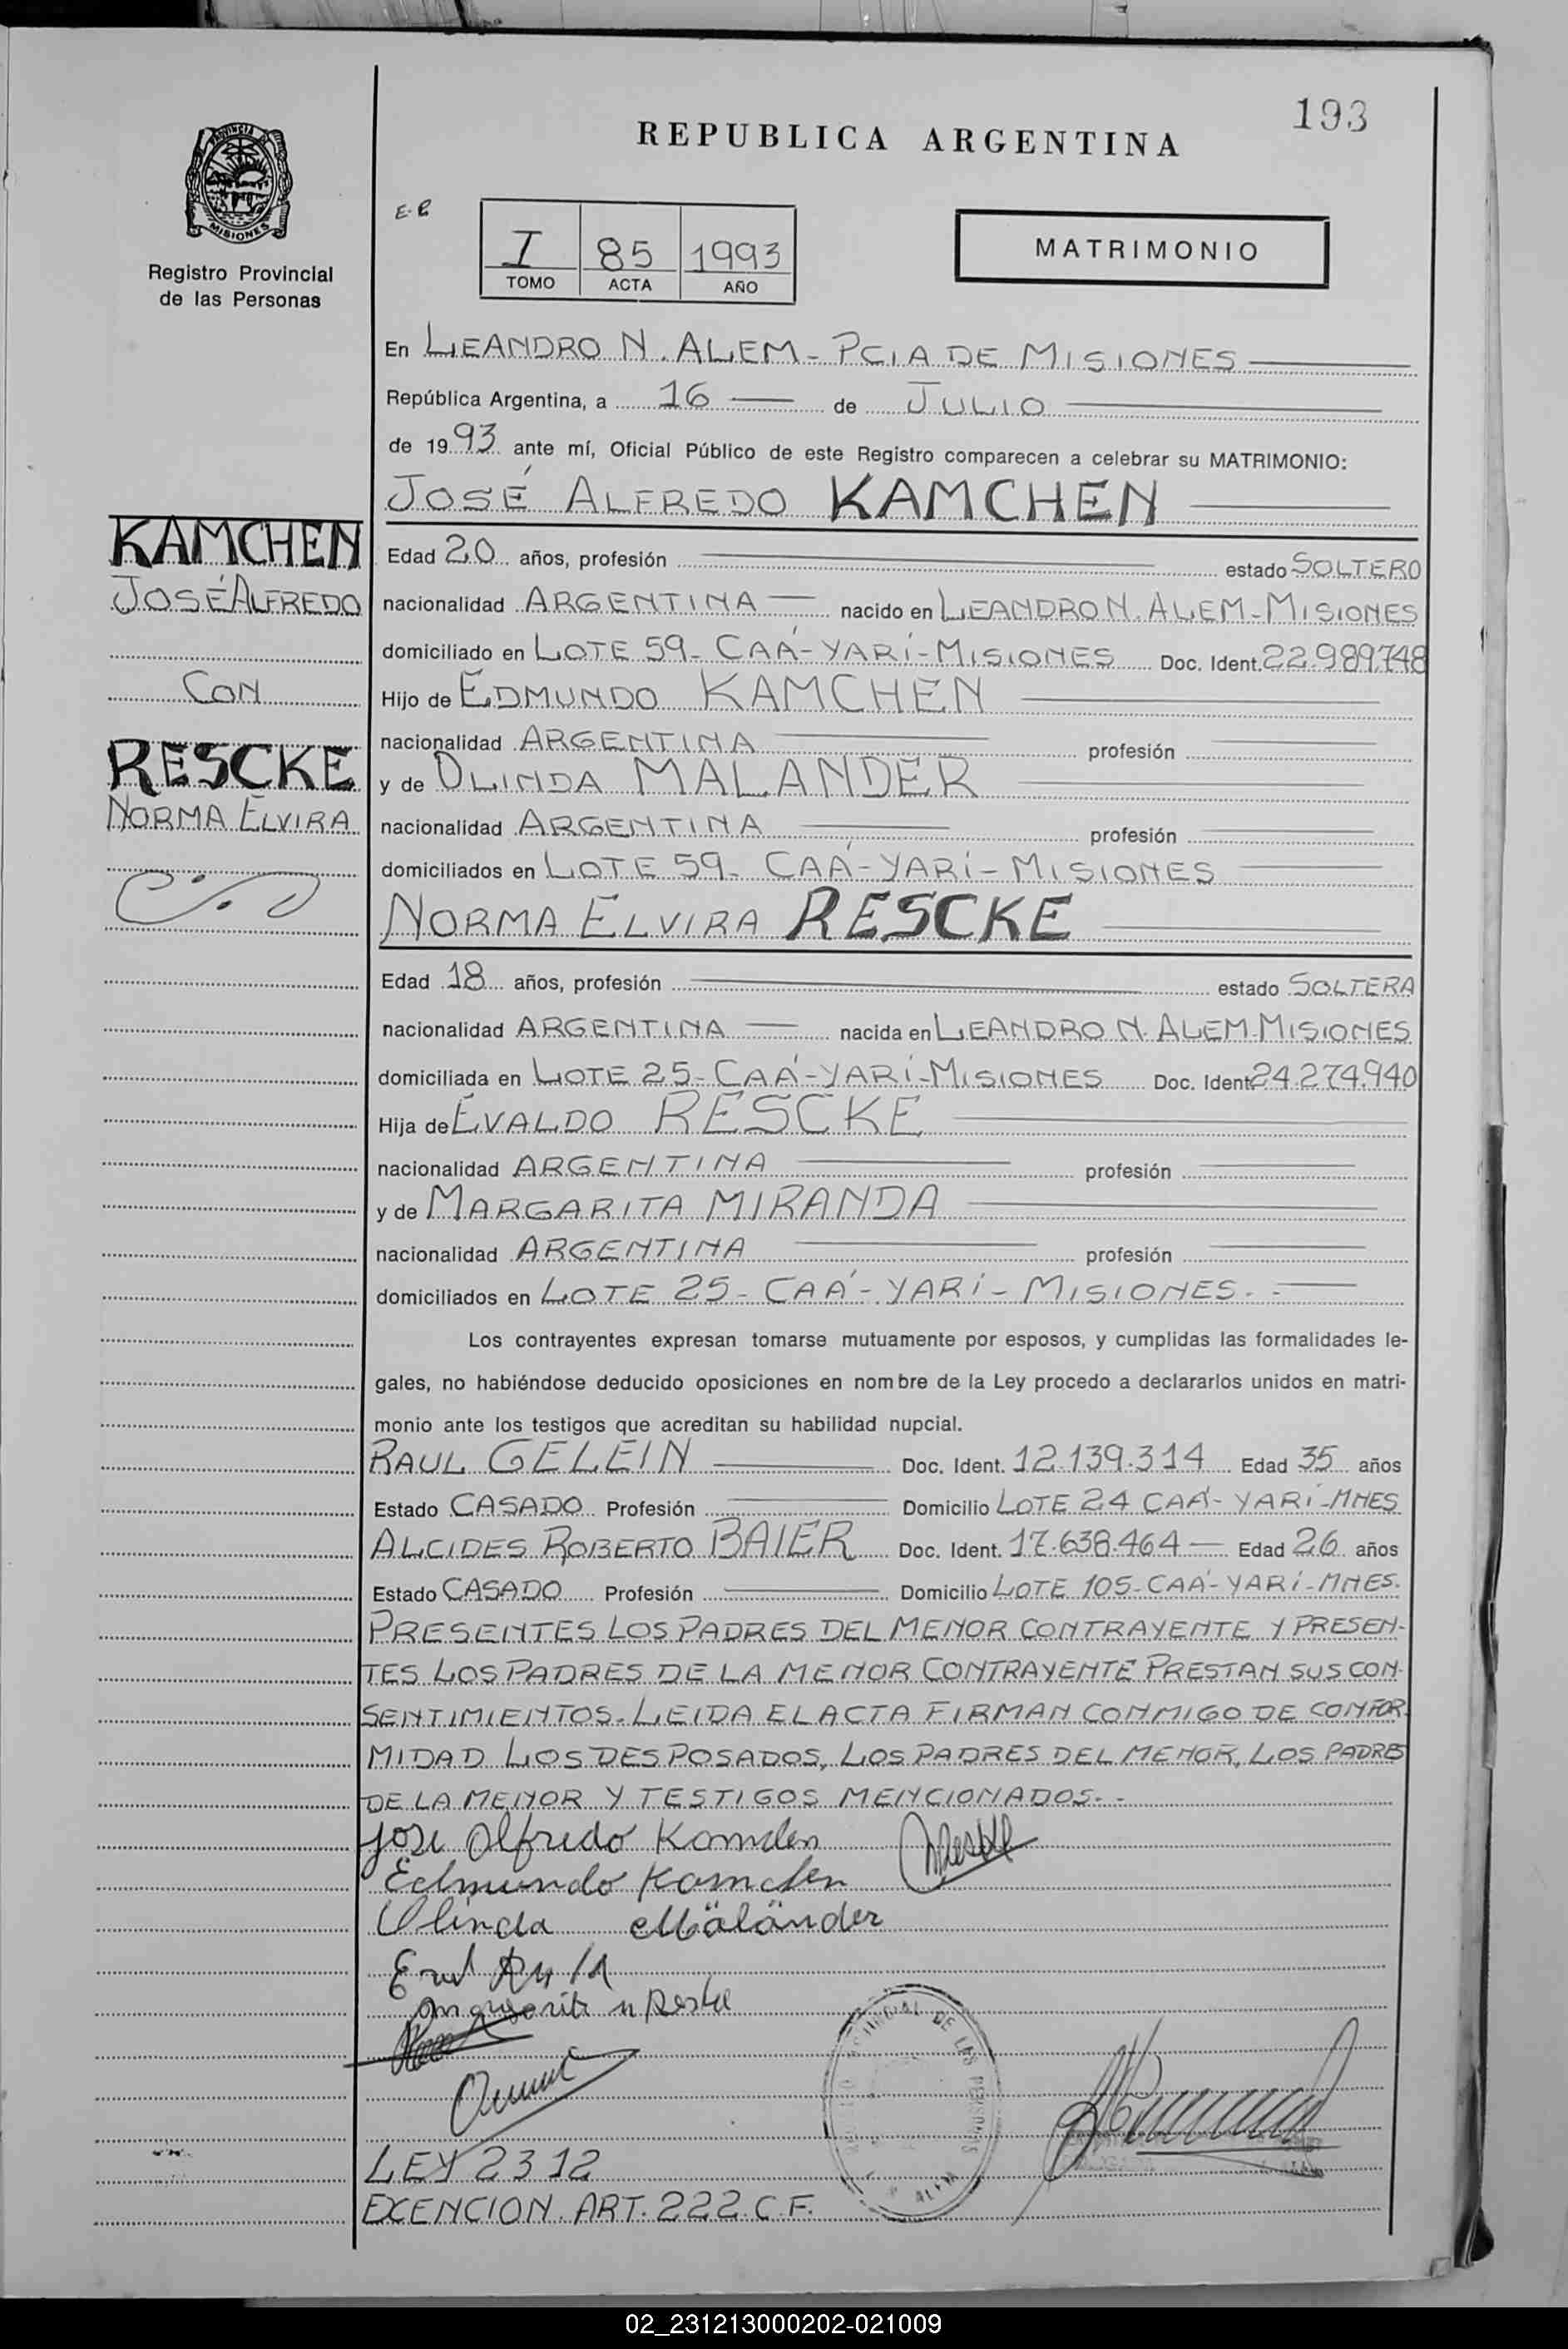 193
REPUBLICA ARGENTINA
PROVINCIA
MISIONES
Registro Provincial
de las Personas
E.R
I 85 1993
TOMO ACTA AÑO
MATRIMONIO
En LEANDRO N. ALEM - PCIA DE MISIONES
República Argentina, a 16 de JULIO
de 1993 ante mí, Oficial Público de este Registro comparecen a celebrar su MATRIMONIO:
JOSÉ ALFREDO KAMCHEN
KAMCHEN
JOSÉ ALFREDO
CON
RESCKE
NORMA ELVIRA
Edad 20 años, profesión estado SOLTERO
nacionalidad ARGENTINA nacido en LEANDRO N. ALEM - MISIONES
domiciliado en LOTE 59 - CAÁ - YARÍ - MISIONES Doc. Ident. 22.989.748
Hijo de EDMUNDO KAMCHEN
nacionalidad ARGENTINA profesión
y de OLINDA MALANDER
nacionalidad ARGENTINA profesión
domiciliados en LOTE 59 - CAÁ - YARÍ - MISIONES
NORMA ELVIRA RESCKE
Edad 18 años, profesión estado SOLTERA
nacionalidad ARGENTINA nacida en LEANDRO N. ALEM - MISIONES
domiciliada en LOTE 25 - CAÁ - YARÍ - MISIONES Doc. Ident. 24.274.940
Hija de EVALDO RESCKE
nacionalidad ARGENTINA profesión
y de MARGARITA MIRANDA
nacionalidad ARGENTINA profesión
domiciliados en LOTE 25 - CAÁ - YARÍ - MISIONES. -
Los contrayentes expresan tomarse mutuamente por esposos, y cumplidas las formalidades le-
gales, no habiéndose deducido oposiciones en nombre de la Ley procedo a declararlos unidos en matri-
monio ante los testigos que acreditan su habilidad nupcial.
RAUL GELEIN Doc. Ident. 12.139.314 Edad 35 años
Estado CASADO Profesión Domicilio LOTE 24 CAÁ - YARÍ - MNES
ALCIDES ROBERTO BAIER Doc. Ident. 17.638.464 Edad 26 años
Estado CASADO Profesión Domicilio LOTE 105 - CAÁ - YARÍ - MNES.
PRESENTES LOS PADRES DEL MENOR CONTRAYENTE Y PRESEN-
TES LOS PADRES DE LA MENOR CONTRAYENTE PRESTAN SUS CON-
SENTIMIENTOS. LEIDA EL ACTA FIRMAN CONMIGO DE CONFOR-
MIDAD LOS DESPOSADOS, LOS PADRES DEL MENOR, LOS PADRES
DE LA MENOR Y TESTIGOS MENCIONADOS. -
José Alfredo Kamchen
Edmundo Kamchen
Olinda Mäländer
LEY 2312
EXENCION ART. 222 C.F.
02_231213000202-021009